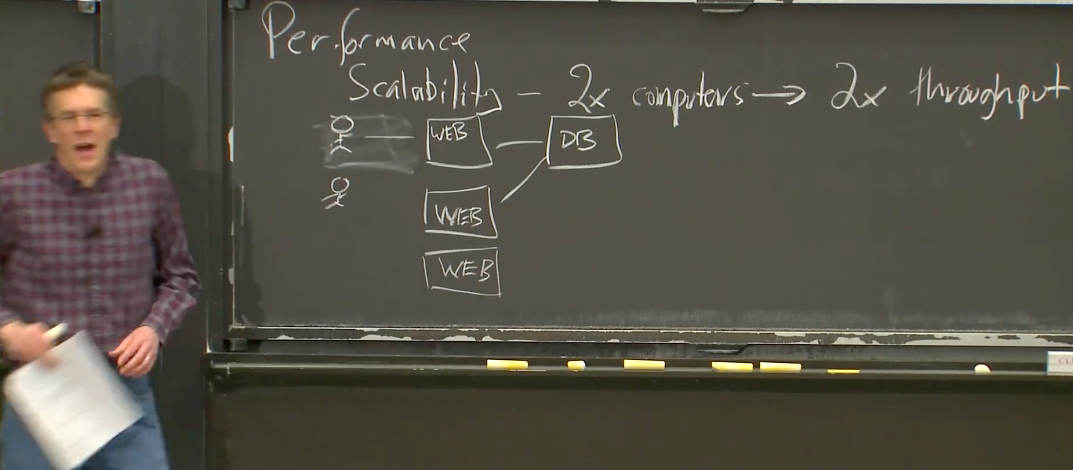 Performance
Scalability – 2x computers → 2x throughput
WEB
DB
WEB
WEB